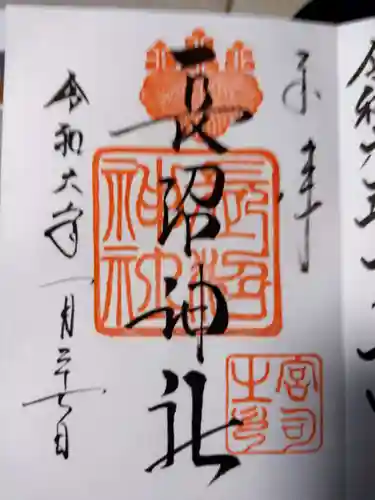 奉拝
長沼神社
長沼神社
宮司之印
令和六年一月二十七日